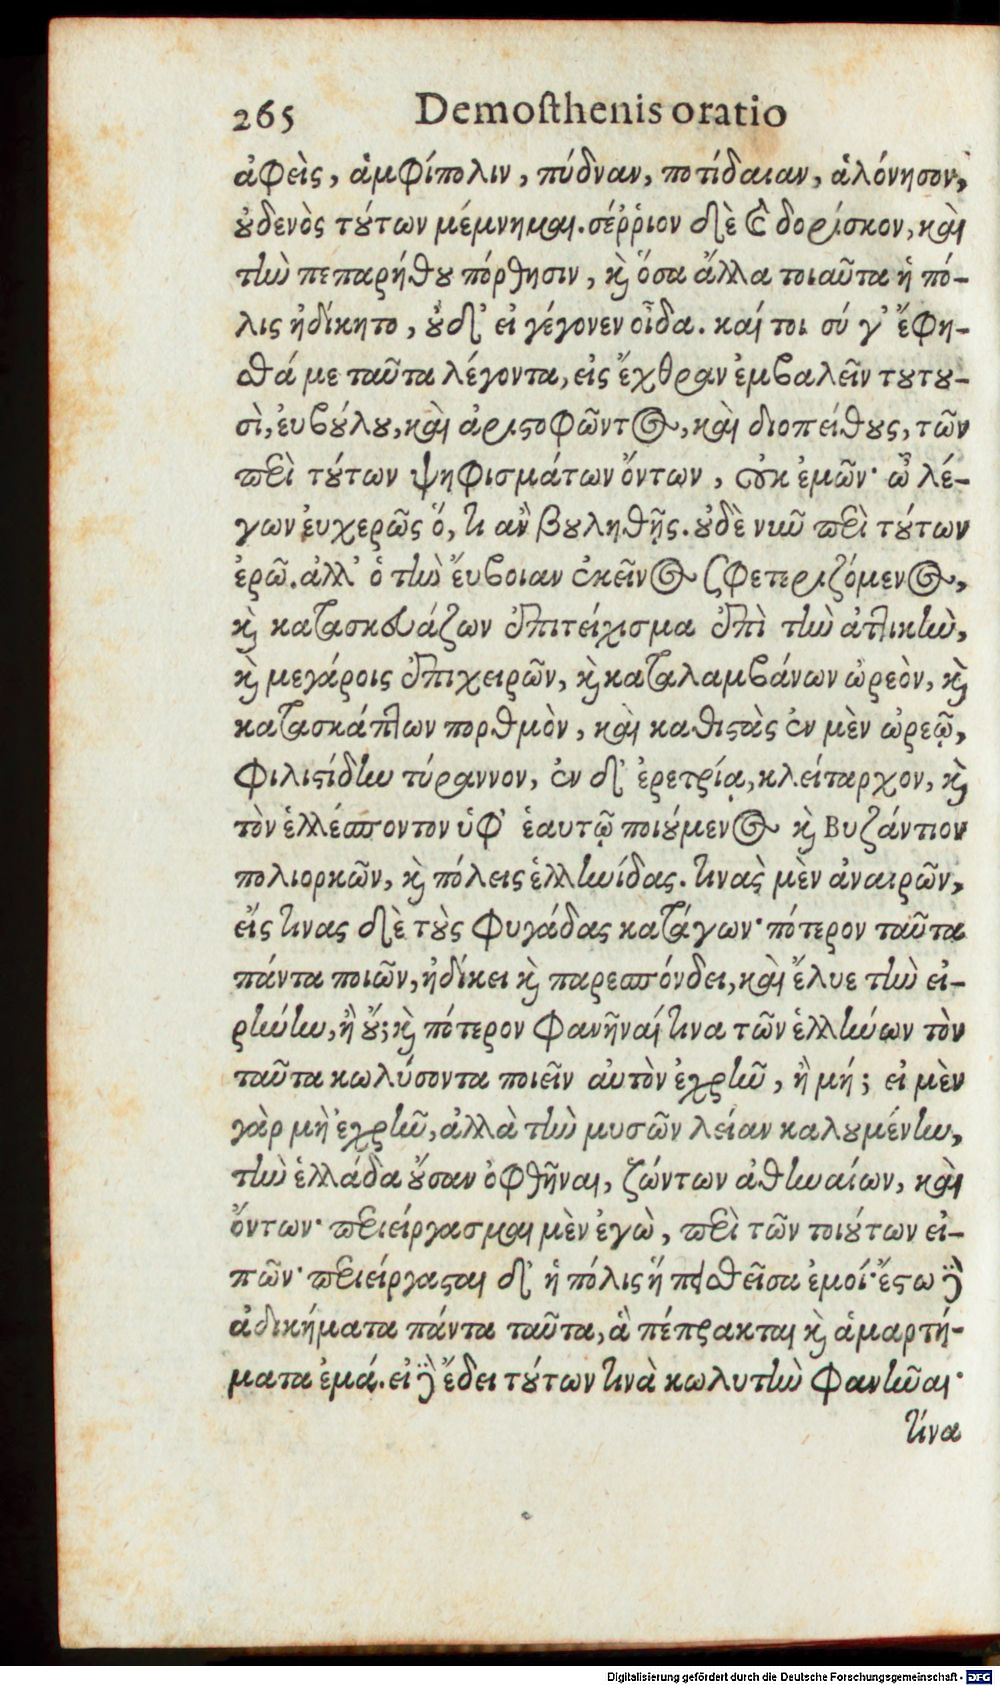 265 Demosthenis oratio
ἀφεὶς, ἀμφίπολιν, πύδναν, ποτίδαιαν, ἁλόνησον,
οὐδενὸς τούτων μέμνημαι. σέῤῥιον δὲ καὶ δορίσκον, καὶ
τὴν πεπαρήθου πόρθησιν, καὶ ὅσα ἄλλα τοιαῦτα ἡ πό-
λις ἠδίκητο, οὐδ' εἰ γέγονεν οἶδα. καί τοι σύ γ' ἔφη-
σθά με ταῦτα λέγοντα, εἰς ἔχθραν ἐμβαλεῖν τουτου-
σὶ, ἐυβούλου, καὶ ἀριστοφῶντος, καὶ διοπείθους, τῶν
περὶ τούτων ψηφισμάτων ὄντων, οὐκ ἐμῶν· ὦ λέ-
γων ἐυχερῶς ὅ, τι ἂν βουληθῇς. οὐδὲ νῦν περὶ τούτων
ἐρῶ. ἀλλ' ὁ τὴν ἔυβοιαν ἐκεῖνος σφετεριζόμενος,
καὶ κατασκευάζων ἐπιτείχισμα ἐπὶ τὴν ἀττικὴν,
καὶ μεγάροις ἐπιχειρῶν, καὶ καταλαμβάνων ὠρεὸν, καὶ
κατασκάπτων πορθμὸν, καὶ καθιστὰς ἐν μὲν ὠρεῷ,
φιλιστίδην τύραννον, ἐν δ' ἐρετρίᾳ, κλείταρχον, καὶ
τὸν ἑλλέσποντον ὑφ' ἑαυτῷ ποιούμενος καὶ Βυζάντιον
πολιορκῶν, καὶ πόλεις ἑλληνίδας. τινὰς μὲν ἀναιρῶν,
εἴς τινας δὲ τοὺς φυγάδας κατάγων· πότερον ταῦτα
πάντα ποιῶν, ἠδίκει καὶ παρεσπόνδει, καὶ ἔλυε τὴν εἰ-
ρήνην, ἢ οὔ; καὶ πότερον φανῆναί τινα τῶν ἑλλήνων τὸν
ταῦτα κωλύσοντα ποιεῖν αὐτὸν ἐχρῆν, ἢ μή; εἰ μὲν
γὰρ μὴ ἐχρῆν, ἀλλὰ τὴν μυσῶν λείαν καλουμένην,
τὴν ἑλλάδα οὖσαν ὀφθῆναι, ζώντων ἀθηναίων, καὶ
ὄντων· περιείργασμαι μὲν ἐγὼ, περὶ τῶν τοιούτων εἰ-
πῶν· περιείργασται δ' ἡ πόλις ἡ πεισθεῖσα ἐμοί· ἔστω δὲ
ἀδικήματα πάντα ταῦτα, ἃ πέπρακται καὶ ἁμαρτή-
ματα ἐμά. εἰ δὲ ἔδει τούτων τινὰ κωλυτὴν φανῆναι·
τίνα
Digitalisierung gefördert durch die Deutsche Forschungsgemeinschaft - DFG